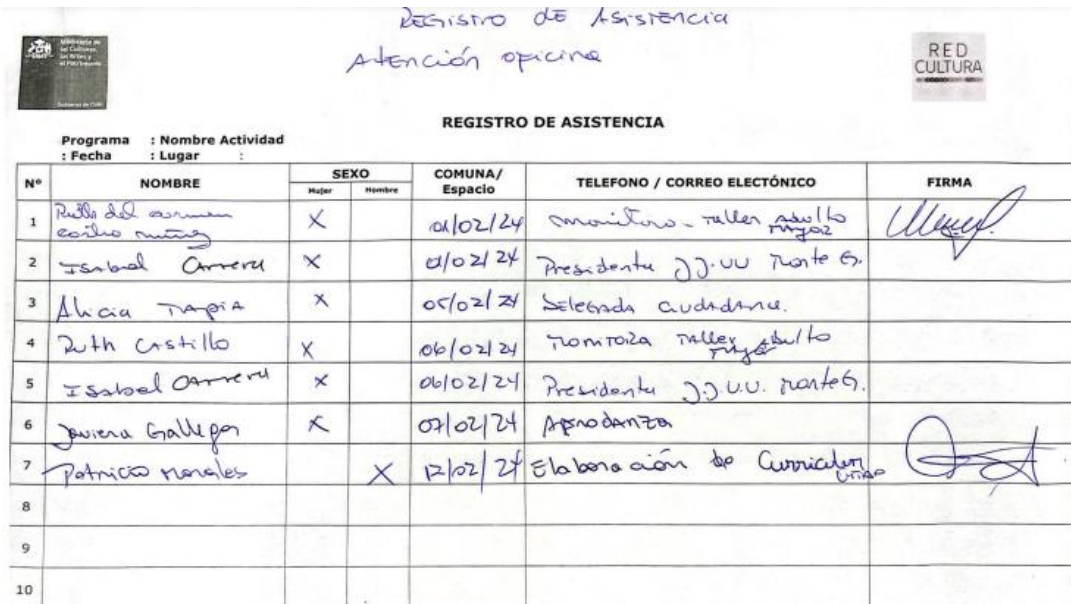 REGISTRO DE ASISTENCIA
Atención oficina
Ministerio de
las Culturas,
las Artes y
el Patrimonio
Gobierno de Chile
RED
CULTURA
REGISTRO DE ASISTENCIA
Programa : Nombre Actividad
: Fecha : Lugar :
Nº NOMBRE SEXO Mujer Hombre COMUNA/ Espacio TELEFONO / CORREO ELECTRÓNICO FIRMA
1 del carmen X 01/02/24 monitora - Taller Adulto mayor
2 Isabel Carrera X 01/02/24 Presidenta JJ.UU Monte G.
3 Alicia TAPIA X 05/02/24 Delegada ciudadana.
4 Ruth Castillo X 06/02/24 Monitora Taller Adulto mayor
5 Isabel Carrera X 06/02/24 Presidenta J.J.U.U. Monte G.
6 Javiera Gallegos X 07/02/24 Aprodanza
7 Patricio Morales X 12/02/24 Elaboración de Curriculum
8
9
10